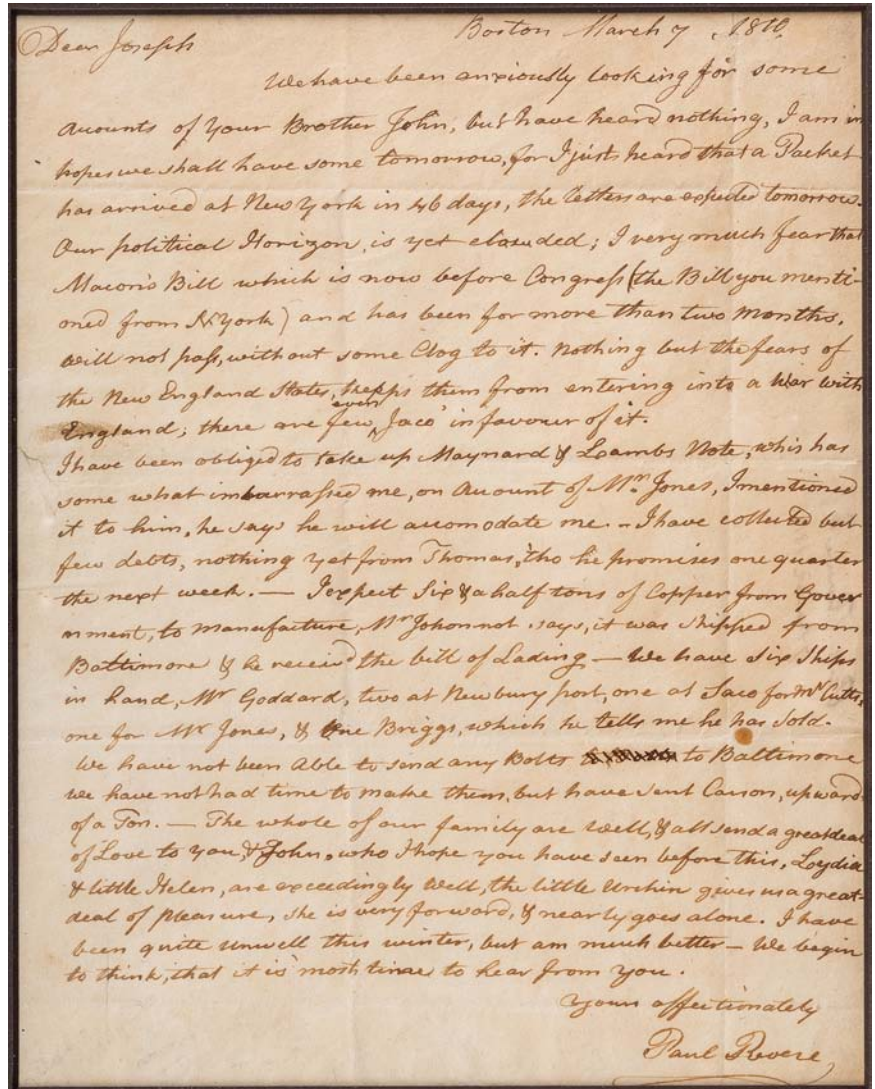 Boston March 7, 1810.
Dear Joseph
We have been anxiously looking for some
Acounts of Your Brother John, but have heard nothing, I am in
hopes we shall have some tomorrow, for I just heard that a Packet
has arrived at New York in 46 days, the letters are expected tomorrow.
Our political Horizon, is yet clouded; I very much fear that
Macon's Bill which is now before Congress (the Bill you menti-
oned from N York) and has been for more than two Months,
will not pass, without some Clog to it. Nothing but the fears of
the New England States, keeps them from entering into a War with
England; there are few even Jaco' in favour of it.
I have been obliged to take up Maynard & Lambs Note, whis has
some what imbarrassed me, on Acount of Mr. Jones, I mentioned
it to him, he says he will acomodate me. – I have collected but
few debts, nothing yet from Thomas, 'tho he promises one quarter
the next week. — I expect Six & a half tons of Copper from Gover
nment, to manufacture, Mr Johonnot says, it was Shipped from
Baltimore & he receivd the bill of Lading — We have Six Ships
in hand, Mr Goddard, two at Newbury port, one at Saco for Mr Cutts,
one for Mr Jones, & One Briggs, which he tells me he has Sold.
We have not been Able to send any Bolts to Baltimore
we have not had time to make them, but have sent Carson, upward
of a Ton. — The whole of our family are well, & all send a great deal
of Love to you, & John, who I hope you have seen before this, Loydia
& little Helen, are exceedingly well, the little Urchin gives us a great-
deal of pleasure, she is very forward, & nearly goes alone. I have
been quite unwell this winter, but am much better – We begin
to think, that it is most time to hear from you.
Yours affectionately
Paul Revere